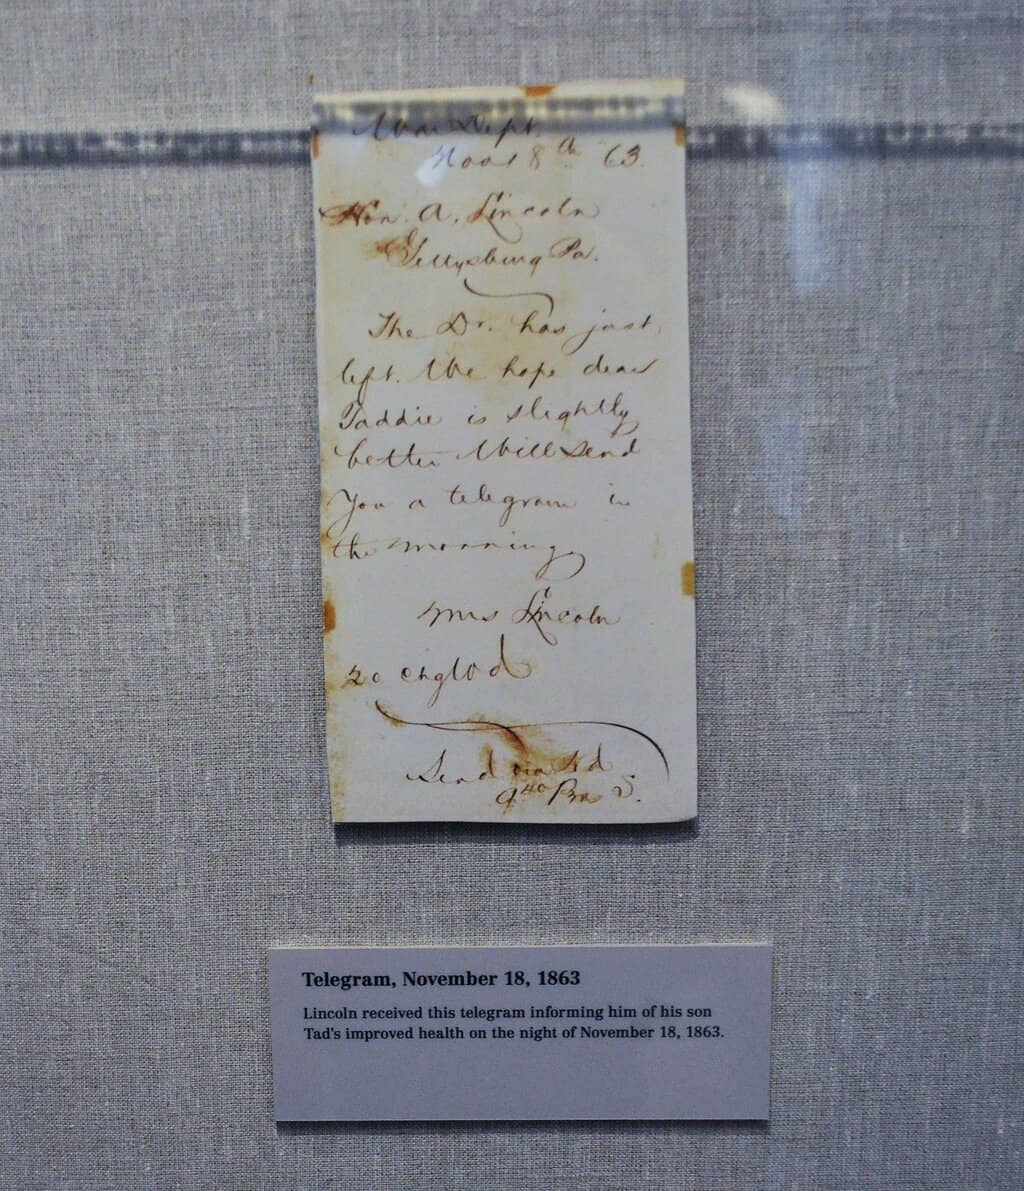 War Dept.
Nov 18th 63.
Hon. A. Lincoln
Gettysburg Pa.
The Dr. has just
left. We hope dear
Taddie is slightly
better Will send
You a telegram in
the morning
Mrs Lincoln
20 Wd
Send via
9 40
Telegram, November 18, 1863
Lincoln received this telegram informing him of his son
Tad's improved health on the night of November 18, 1863.